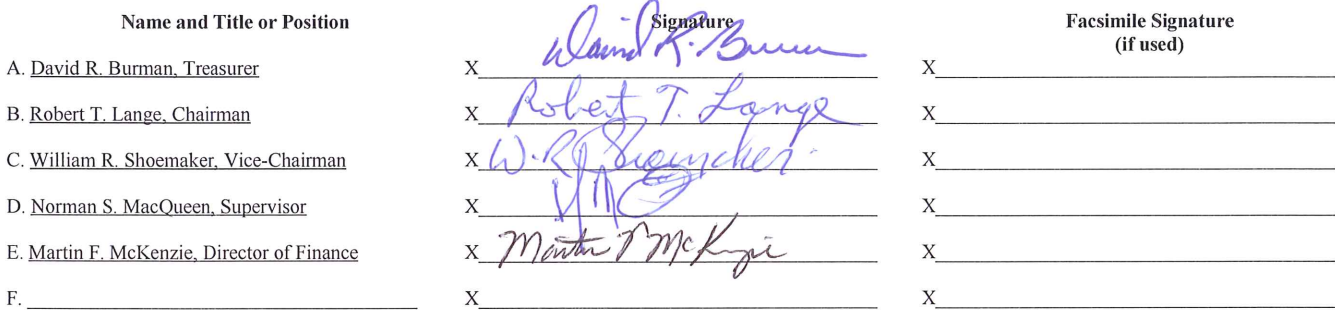 Name and Title or Position Signature Facsimile Signature
(if used)
A. David R. Burman, Treasurer X David R. Burman X
B. Robert T. Lange, Chairman X Robert T. Lange X
C. William R. Shoemaker, Vice-Chairman X W. R. Shoemaker X
D. Norman S. MacQueen, Supervisor X X
E. Martin F. McKenzie, Director of Finance X Martin F McKenzie X
F. X X